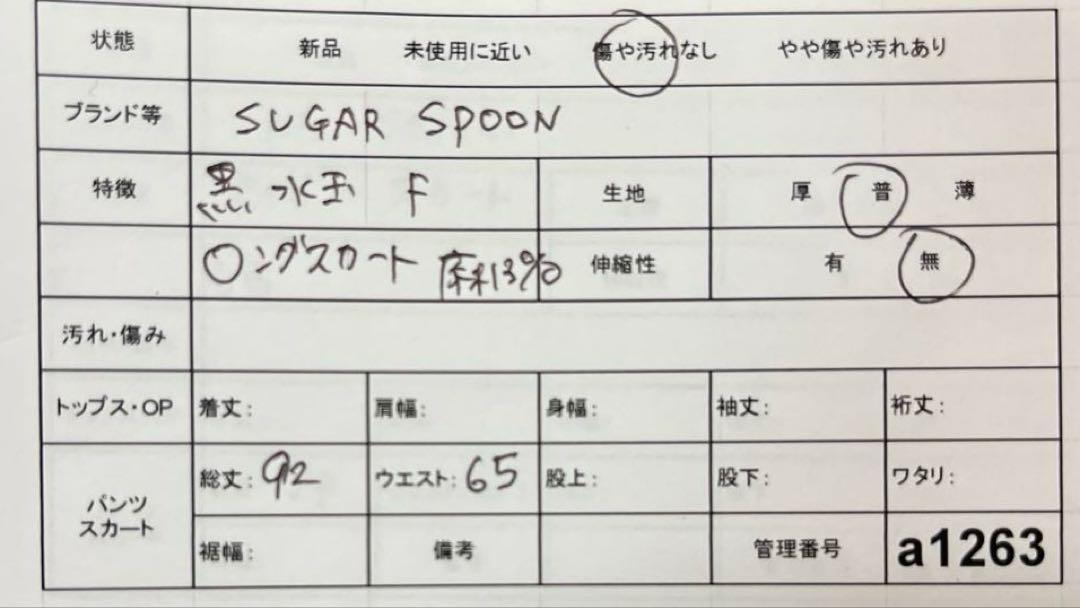 状態 新品 未使用に近い 傷や汚れなし やや傷や汚れあり
ブランド等 SUGAR SPOON
特徴 黒 水玉 F 生地 厚 普 薄
ロングスカート 麻13% 伸縮性 有 無
汚れ・傷み
トップス・OP 着丈: 肩幅: 身幅: 袖丈: 裄丈:
パンツ
スカート
総丈: 92 ウエスト: 65 股上: 股下: ワタリ:
裾幅: 備考 管理番号 a1263